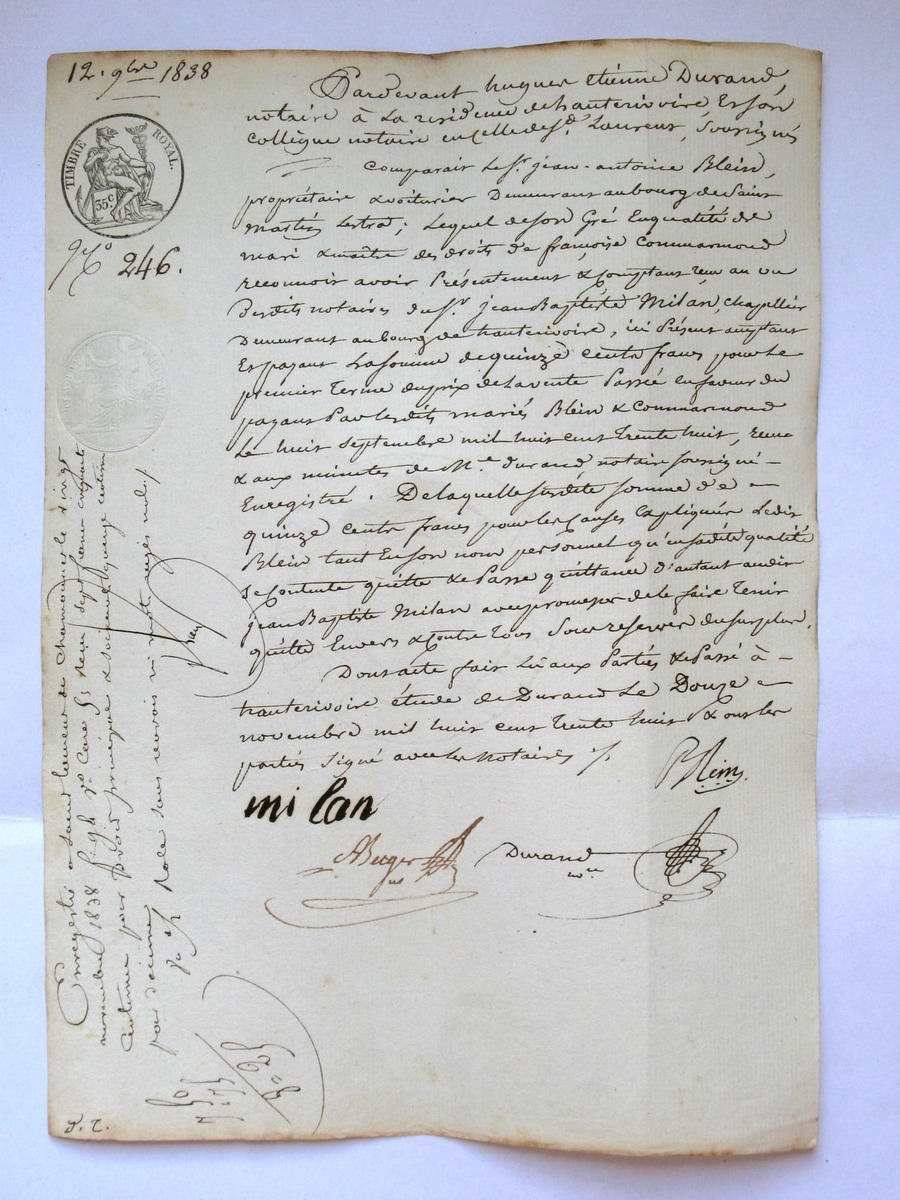 12. 9bre 1838
TIMBRE ROYAL.
35c
No 246.
Pardevant hugues étienne Durand,
notaire à La résidence de hauterivoire, Et son
collègue notaire en celle de St Laurent, soussignés
Comparait le Sr jean-antoine Blein,
propriétaire & voiturier Demeurant au bourg de Saint
Martin Lestra; Lequel de son Gré En qualité de
mari & maître des droits de françoise Commarmond
reconnoit avoir Présentement & Comptant reçu au vu
Desdits notaires du Sr jean Baptiste Milan, chapellier
Demeurant au bourg de hauterivoire, ici Présent acceptant
Et payant La somme de quinze cents francs pour le
premier Terme du prix de la vente Passée en faveur du
payant Par lesdits mariés Blein & Commarmond
Le huit Septembre mil huit cent trente huit, reçue
& aux minutes de Me durand notaire soussigné -
Enregistré. De laquelle susdite somme de -
quinze cents francs pour les Causes Expliquées Ledit
Blein tant En son nom personnel qu'en sadite qualité
se Contente quitte & Passe quittance d'autant audit
jean Baptiste Milan avec promesse de le faire Tenir
quitte Envers & Contre Tous Sous reserves du surplus.
Dont acte fait Lu aux Parties & Passé à -
hauterivoire étude de Durand Le Douze -
novembre mil huit cent Trente huit & ont les
parties Signé avec les Notaires
Blein
milan
Durand
nre
Enregistré à Saint Laurent de Chamousset le vingt
novembre 1838 fo 98 Ro Case 5 reçu sept francs cinquante
centimes pour droit principal & soixante quinze centimes
pour décime
Rôle sans renvois ni mots rayés nuls